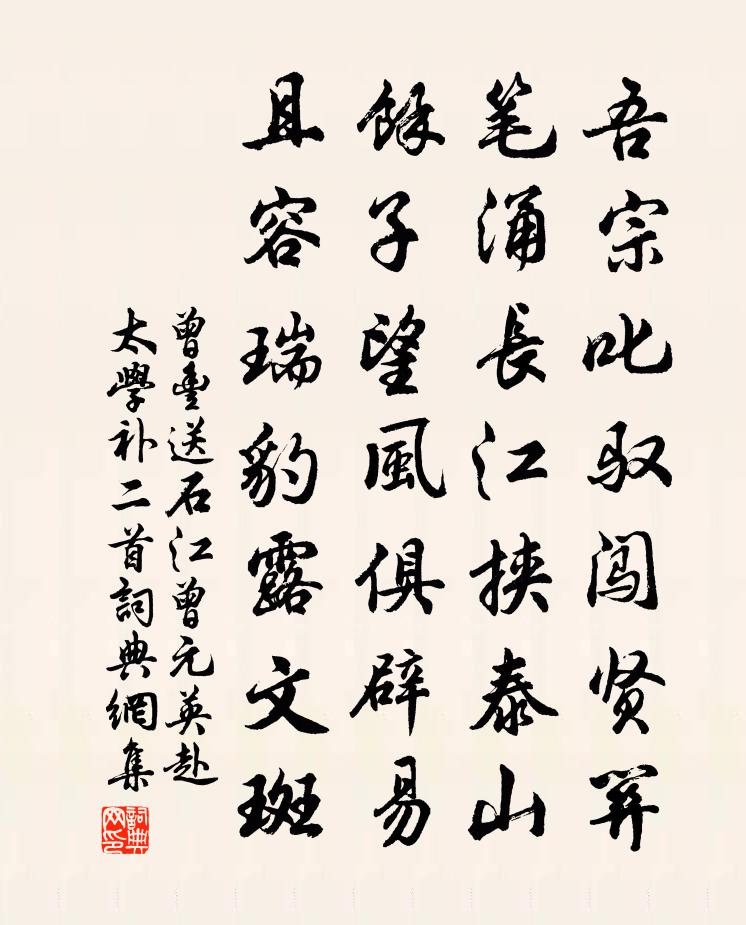 吾宗叱驭闯贤关
笔涌長江挟泰山
餘子望風俱辟易
且容瑞豹露文斑
曾豊送石江曾元英赴
太學补二首詞典網集
詞典